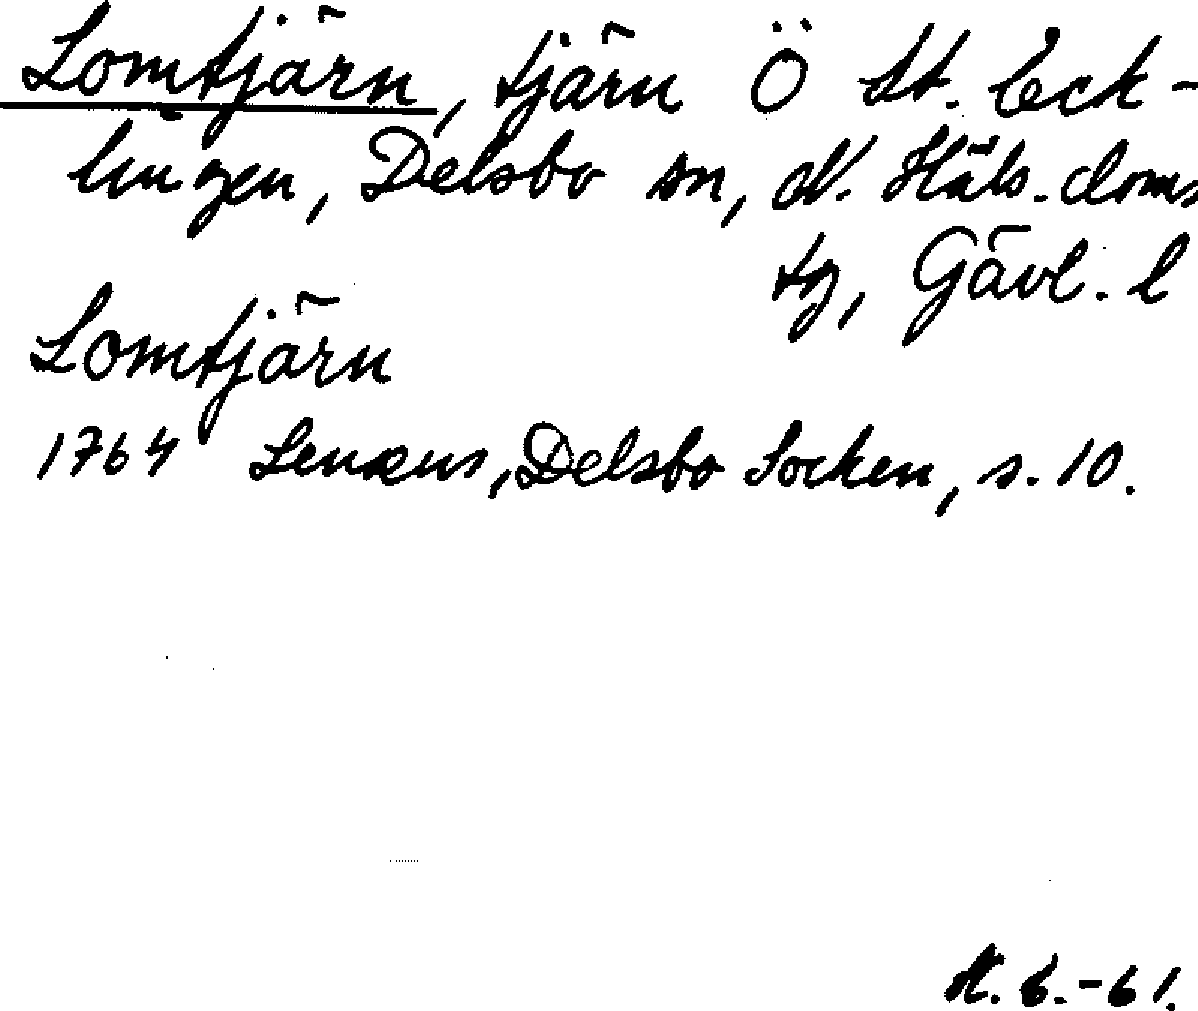 Lomtjärn, tjärn Ö St. Teck-
lingen, Delsbo sn, N. Häls. doms
tg, Gävl. l
Lomtjärn
1764 Lenæus, Delsbo Socken, s. 10.
-61.